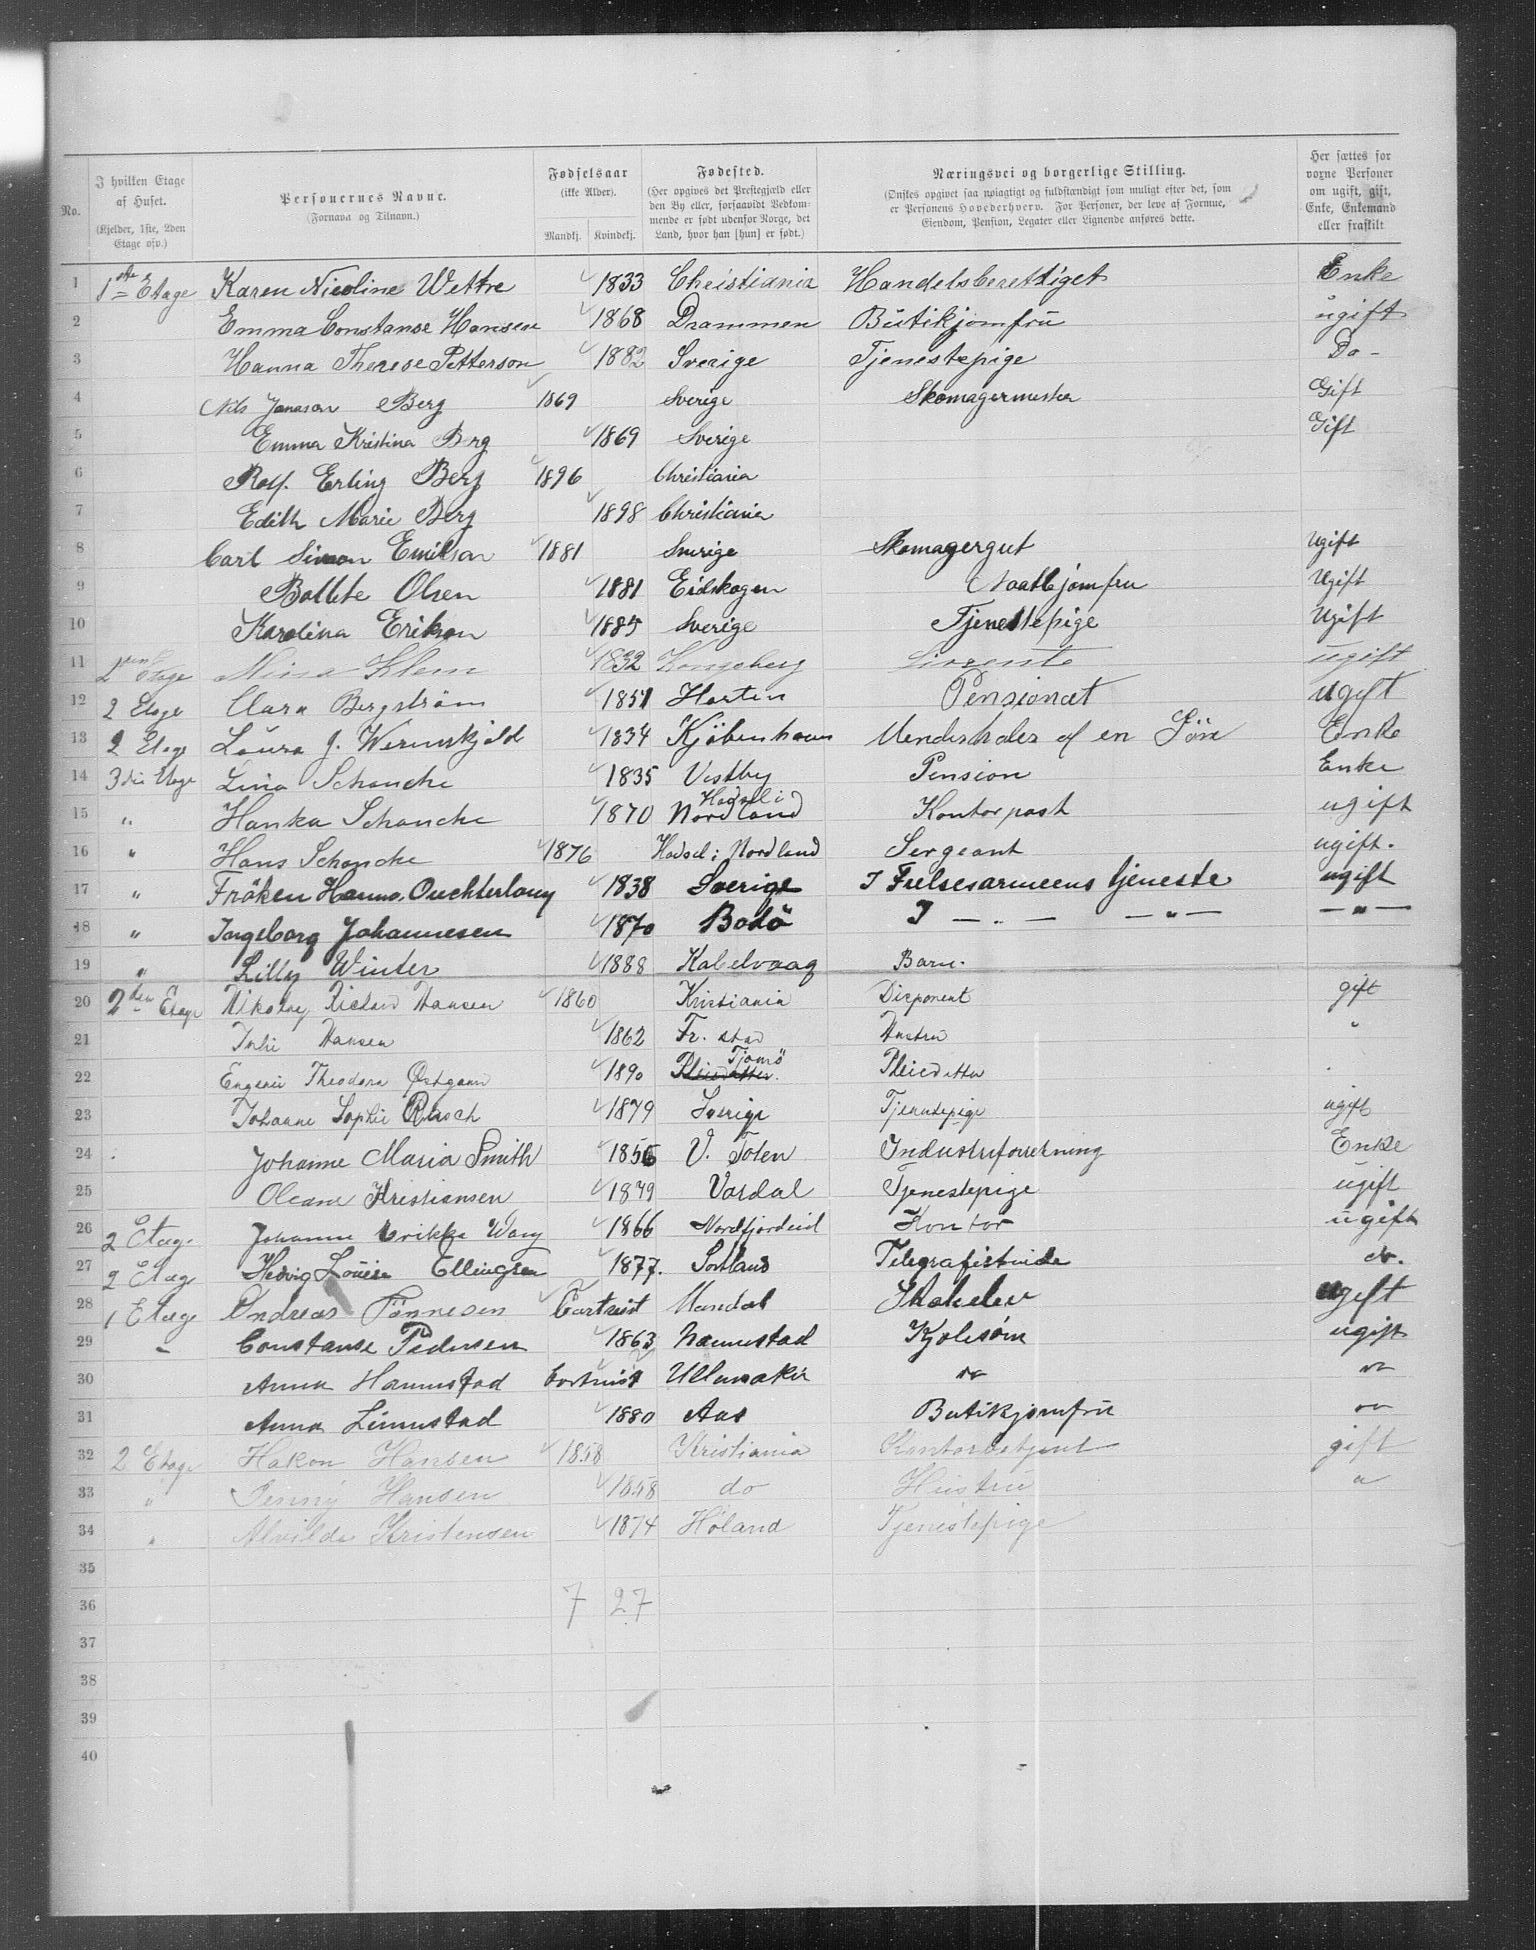 No.
I hvilken Etage af Huset. (Kjelder, 1ste, 2den Etage osv.)
Personernes Navne. (Fornavn og Tilnavn.)
Fødselsaar (ikke Alder). Mandkj. Kvindekj.
Fødested. (Her opgives det Prestegjæld eller den By eller, forsaavidt Vedkommende er født udenfor Norge, det Land, hvor han [hun] er født.)
Næringsvei og borgerlige Stilling. (Ønskes opgivet saa nøiagtigt og fuldstændigt som muligt efter det, som er Personens Hovederhverv. For Personer, der leve af Formue, Eiendom, Pension, Legater eller Lignende anføres dette.
Her sættes for voxne Personer om ugift, gift, Enke, Enkemand eller fraskilt
1 1ste Etage Karen Nicoline Wettre 1833 Christiania Handelsberettiget Enke
2 Emma Constanse Hansen 1868 Drammen Butikjomfru ugift
3 Hanna Therese Petterson 1882 Sverige Tjenestepige Do-
4 Nils Jonason Berg 1869 Sverige Skomagermester Gift
5 Emma Kristina Berg 1869 Sverige Gift
6 Rolf Erling Berg 1896 Christiania
7 Edith Marie Berg 1898 Christiania
8 Carl Simon Emilson 1881 Sverige Skomagergut Ugift
9 Bollete Olsen 1881 Eidskogen Naatlejomfru Ugift
10 Karolina Erikson 1885 Sverige Tjenestepige Ugift
11 2den Etage Mina Klem 1832 Kongsberg ugift
12 2 Etage Clara Bergstrøm 1851 Horten Pensionat ugift
13 2 Etage Laura J. Wermskjold 1834 Kjøbenhavn Underholdes af en Søn Enke
14 3die Etage Lina Schancke 1835 Vestby Pension Enke
15 " Hanka Schancke 1870 Hadsel i Nordland Kontor post ugift
16 " Hans Schancke 1876 Hadsel i Nordland Sergeant ugift.
17 " Fröken Hanna Ouchterlony 1838 Sverige I Frelsesarmeens tjeneste ugift
18 " Ingeborg Johannesen 1870 Bodö I — " — — " — — " —
19 " Lilly Winter 1888 Kabelvaag Barn.
20 2den Etage Nikolay Richard Hansen 1860 Kristiania Disponent gift
21 Hansen 1862 Fr. stad Hustru "
22 Eugenie Theodora Østgaard 1890 Tjømö Pleiedatter
23 Johanne Sophie Rasch 1879 Sverige Tjenestepige ugift
24 Johanne Maria Smith 1856 V. Toten Industriforretning Enke
25 Oleane Kristiansen 1879 Vardal Tjenestepige ugift
26 2 Etag. Johanne Erikka Wang 1866 Nordfjordeid Kontor ugift
27 2 Etag Hedvig Louise Ellingsen 1877. Sortland Telegrafistinde do.
28 1 Etag Andreas Tønnesen Bortreist Mandal ugift
29 " Constanse Pedersen 1863 Kjolesøm ugift
30 Anna Hannestad bortreist Ullensaker do do
31 Anna Linnestad 1880 Aas Butikjomfru do
32 2 Etage Hakon Hansen 1858 Kristiania Kontorbetjent gift
33 " Jenny Hansen 1858 do Hustru "
34 " Alvilde Kristensen 1874 Høland Tjenestepige
35
36 7 27
37
38
39
40